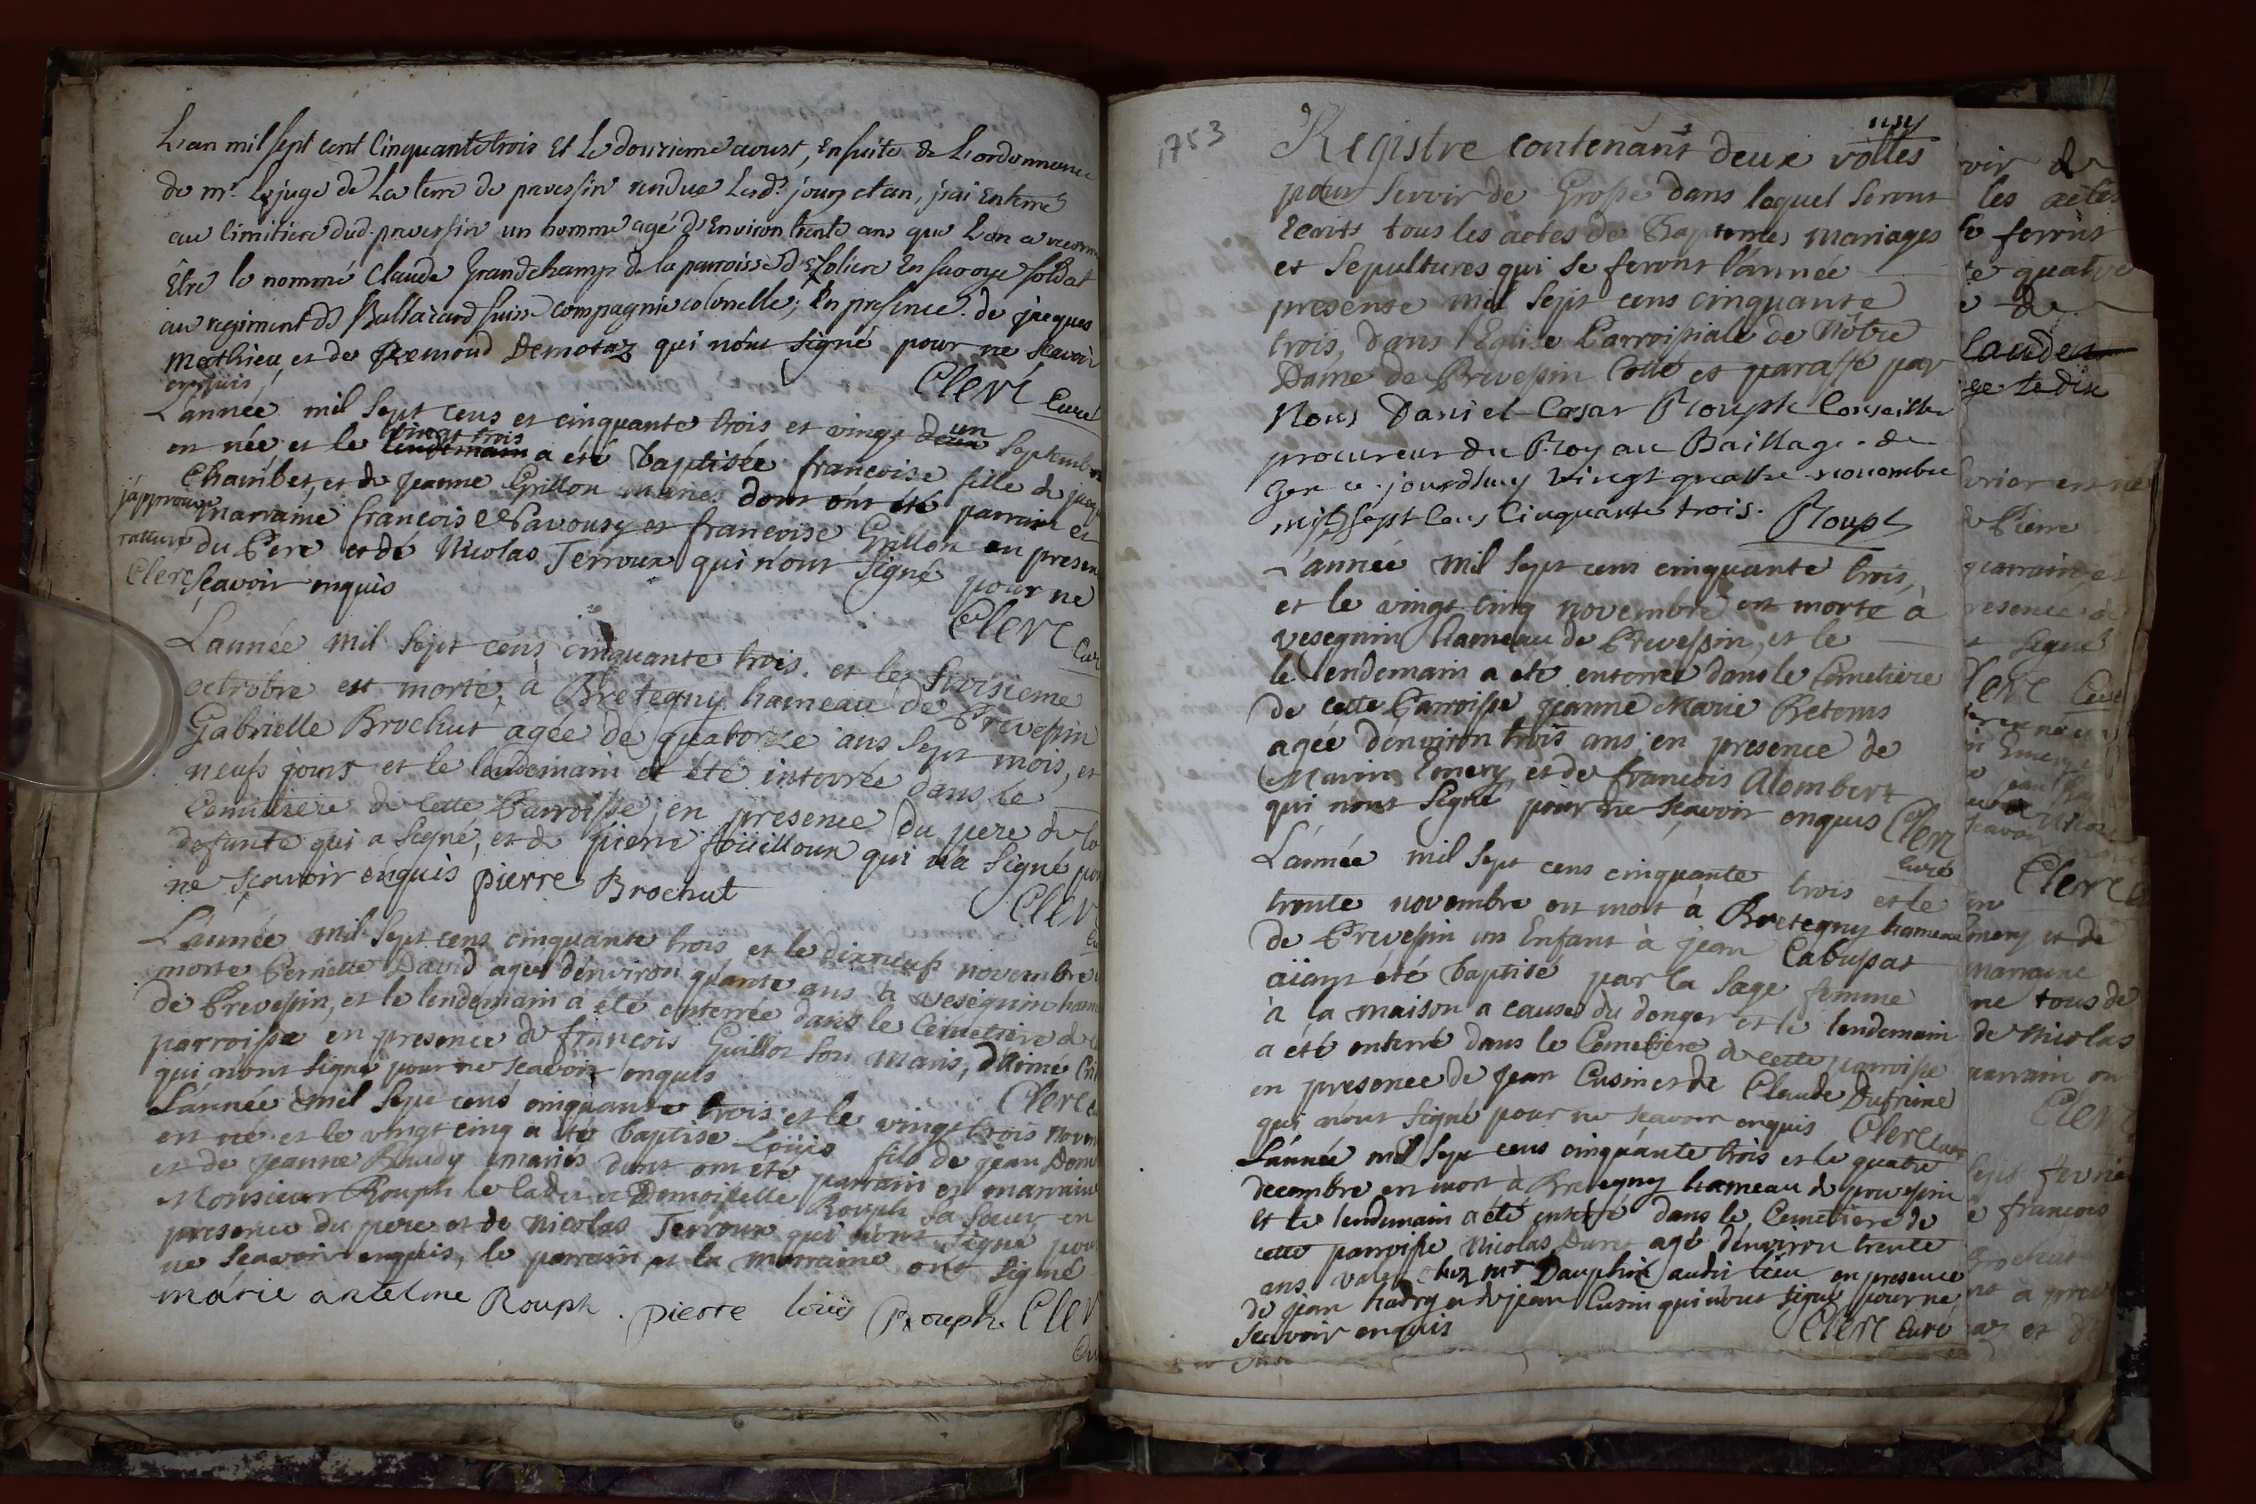 L'an mil sept cent Cinquante trois Et Le douzieme aoust, Ensuite de L'ordonnance
de mr. Le juge de La terre de prevessin rendue Lesd. jour et an, j'ai Enterré
au Cimitiere dud. prevessin un homme agé d'Environ trente ans que L'on a reconnu
Être le nommé Claude Grandchamp de la parroisse d' En savoye soldat
au regiment de Suisse Compagnie colonelle, En presence de jacques
Mathieu, et de Remond Demotaz qui n'ont signé pour ne scavoir
enquis,
Clerc Curé
L'année mil sept cens et cinquante trois et vingt deux un Septembre
est née et le lendemain vingt trois a été baptisée francoise fille de
Chambet, et de Jeanne Grillon maries dont ont été parrain et
marraine francois et francoise Grillon en presen
du Pere et de Nicolas Terroux qui n'ont signé pour ne
sçavoir enquis
j'approuve
rature
Clerc
Clerc Cur
L'année mil sept cens cinquante trois et le
octobre est morte, à Bretegny hameau de Prevessin
Gabrielle Brochut agée de quatorze ans sept mois, et
neufs jours et le lendemain a été interrée dans le
Cemitiere de cette Parroisse, en presence du pere de la
defunte qui a signé, et de pierre foüilloux qui n'a signé pou
ne sçavoir enquis pierre Brochut
Clerc
L'année mil sept cens cinquante trois et le dixneufs novembre
morte Pernette David agée d'environ quarante ans à Vesegnin ham
de Prevessin, et le lendemain à été enterrée dans le Cemetiere de
parroisse en presence de françois Guillot son maris, d'Aimé
qui n'ont signé pour ne scavoir enquis
Clerc
L'année mil sept cens cinquante trois et le vingt trois novem
est né et le vingt cinq a été baptisé Loüis fils de jean
et de Jeanne mariés dont ont été parrain et marraine
Monsieur Rouph le cadet et Demoiselle Rouph sa Soeur en
presence du pere et de Nicolas Terroux qui n'ont signé pou
ne sçavoir enquis, le parrain et la marraine ont signé
marie antelme Rouph. pierre loüis Rouph. Cler
1753
Registre contenant deux rolles
pour servir de Grosse dans lequel seront
Ecrits tous les actes de Baptemes, Mariages
et Sepultures qui se feront l'année
presente mil sept cens cinquante
trois, dans l'Eglise Parroissiale de Nôtre
Dame de Prevessin Cotté et paraffé par
Nous Daniel Cesar Rouph Conseiller
procureur du Roy au Baillage de
Gex ce jourd'huy vingt quatre novembre
mil sept cens Cinquante trois. Rouph
L'année mil sept cens cinquante trois,
et le vingt cinq novembre est morte à
Vesegnin hameau de Prevessin, et le
le lendemain a eté enterrée dans le Cemetiere
de cette Parroisse jeanne Marie Retorns
agée denviron trois ans en presence de
Marin Emery, et de francois Alombert
qui n'ont signé pour ne sçavoir enquis Clerc
Curé
L'année mil sept cens cinquante trois et le
trente novembre est mort à Bretegny hameau
de Prevessin un Enfant à jean Cabussat
aiant été baptisé par la sage femme
à la maison a cause du danger et le lendemain
a été enterré dans le Cemetiere de cette parroisse
en presence de Jean Cusin et de Claude Dufrene
qui n'ont signé pour ne scavoir enquis Clerc Curé
L'année mil sept cens cinquante trois et le quatre
decembre est mort à Bretegny hameau de prevessin
et le lendemain a été enterré dans le Cemetiere de
cette parroisse Nicolas Duret agé d'environ trente
ans valet chez mr Dauphin audit lieu en presence
de jean hadry et de jean Cusin qui n'ont signé pour ne
scavoir enquis Clerc Curé
voir de
les actes
feront
te quatre
de
vrier est né
de Pierre
parrain et
resence de
signé
Clerc Curé
Clerc
mery et de
marraine
ne tous de
de Nicolas
parrain on
Clerc
francois
et